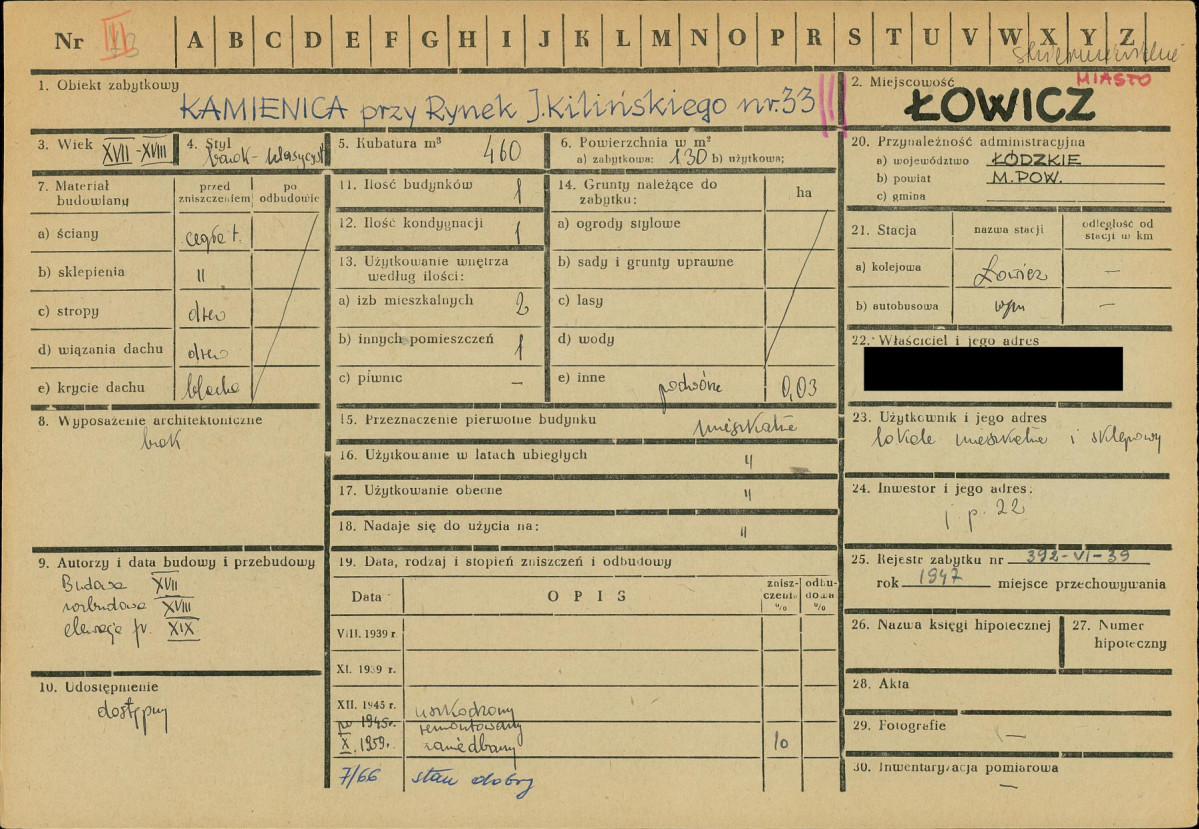 Nr III
A B C D E F G H I J K L M N O P R S T U V W X Y Z
skierniewickie
1. Obiekt zabytkowy
KAMIENICA przy Rynek J.Kilińskiego nr.33
2. Miejscowość
MIASTO
ŁOWICZ
3. Wiek XVII-XVIII
4. Styl barok-klasycyst
5. Kubatura m³ 460
6. Powierzchnia w m²
a) zabytkowa: 130 b) użytkowa:
7. Materiał budowlany
przed zniszczeniem
po odbudowie
a) ściany cegła t.
b) sklepienia "
c) stropy drew
d) wiązania dachu drew
e) krycie dachu blacha
8. Wyposażenie architektoniczne
brak
9. Autorzy i data budowy i przebudowy
Budowa XVII
rozbudowa XVIII
elewacja fr. XIX
10. Udostępnienie
dostępny
11. Ilość budynków 1
12. Ilość kondygnacji 1
13. Użytkowanie wnętrza
według ilości:
a) izb mieszkalnych 2
b) innych pomieszczeń 1
c) piwnic –
14. Grunty należące do
zabytku:
ha
a) ogrody stylowe
b) sady i grunty uprawne
c) lasy
d) wody
e) inne podwórze 0,03
15. Przeznaczenie pierwotne budynku mieszkalne
16. Użytkowanie w latach ubiegłych "
17. Użytkowanie obecne "
18. Nadaje się do użycia na: "
19. Data, rodzaj i stopień zniszczeń i odbudowy
Data
OPIS
znisz-
czenie
%
odbu-
dowa
%
VIII. 1939 r.
XI. 1939 r.
XII. 1945 r. uszkodzony
po 1945r. remontowany
X. 1959r. zaniedbany 10
7/66 stan dobry
20. Przynależność administracyjna
a) województwo ŁÓDZKIE
b) powiat M.POW.
c) gmina
21. Stacja
nazwa stacji
odległość od
stacji w km
a) kolejowa Łowicz –
b) autobusowa wm –
22. Właściciel i jego adres
23. Użytkownik i jego adres
lokale mieszkalne i sklepowy
24. Inwestor i jego adres:
j p. 22
25. Rejestr zabytku nr 392-VI-39
rok 1947 miejsce przechowywania
26. Nazwa księgi hipotecznej
27. Numer
hipoteczny
28. Akta
29. Fotografie
–
30. Inwentaryzacja pomiarowa
–